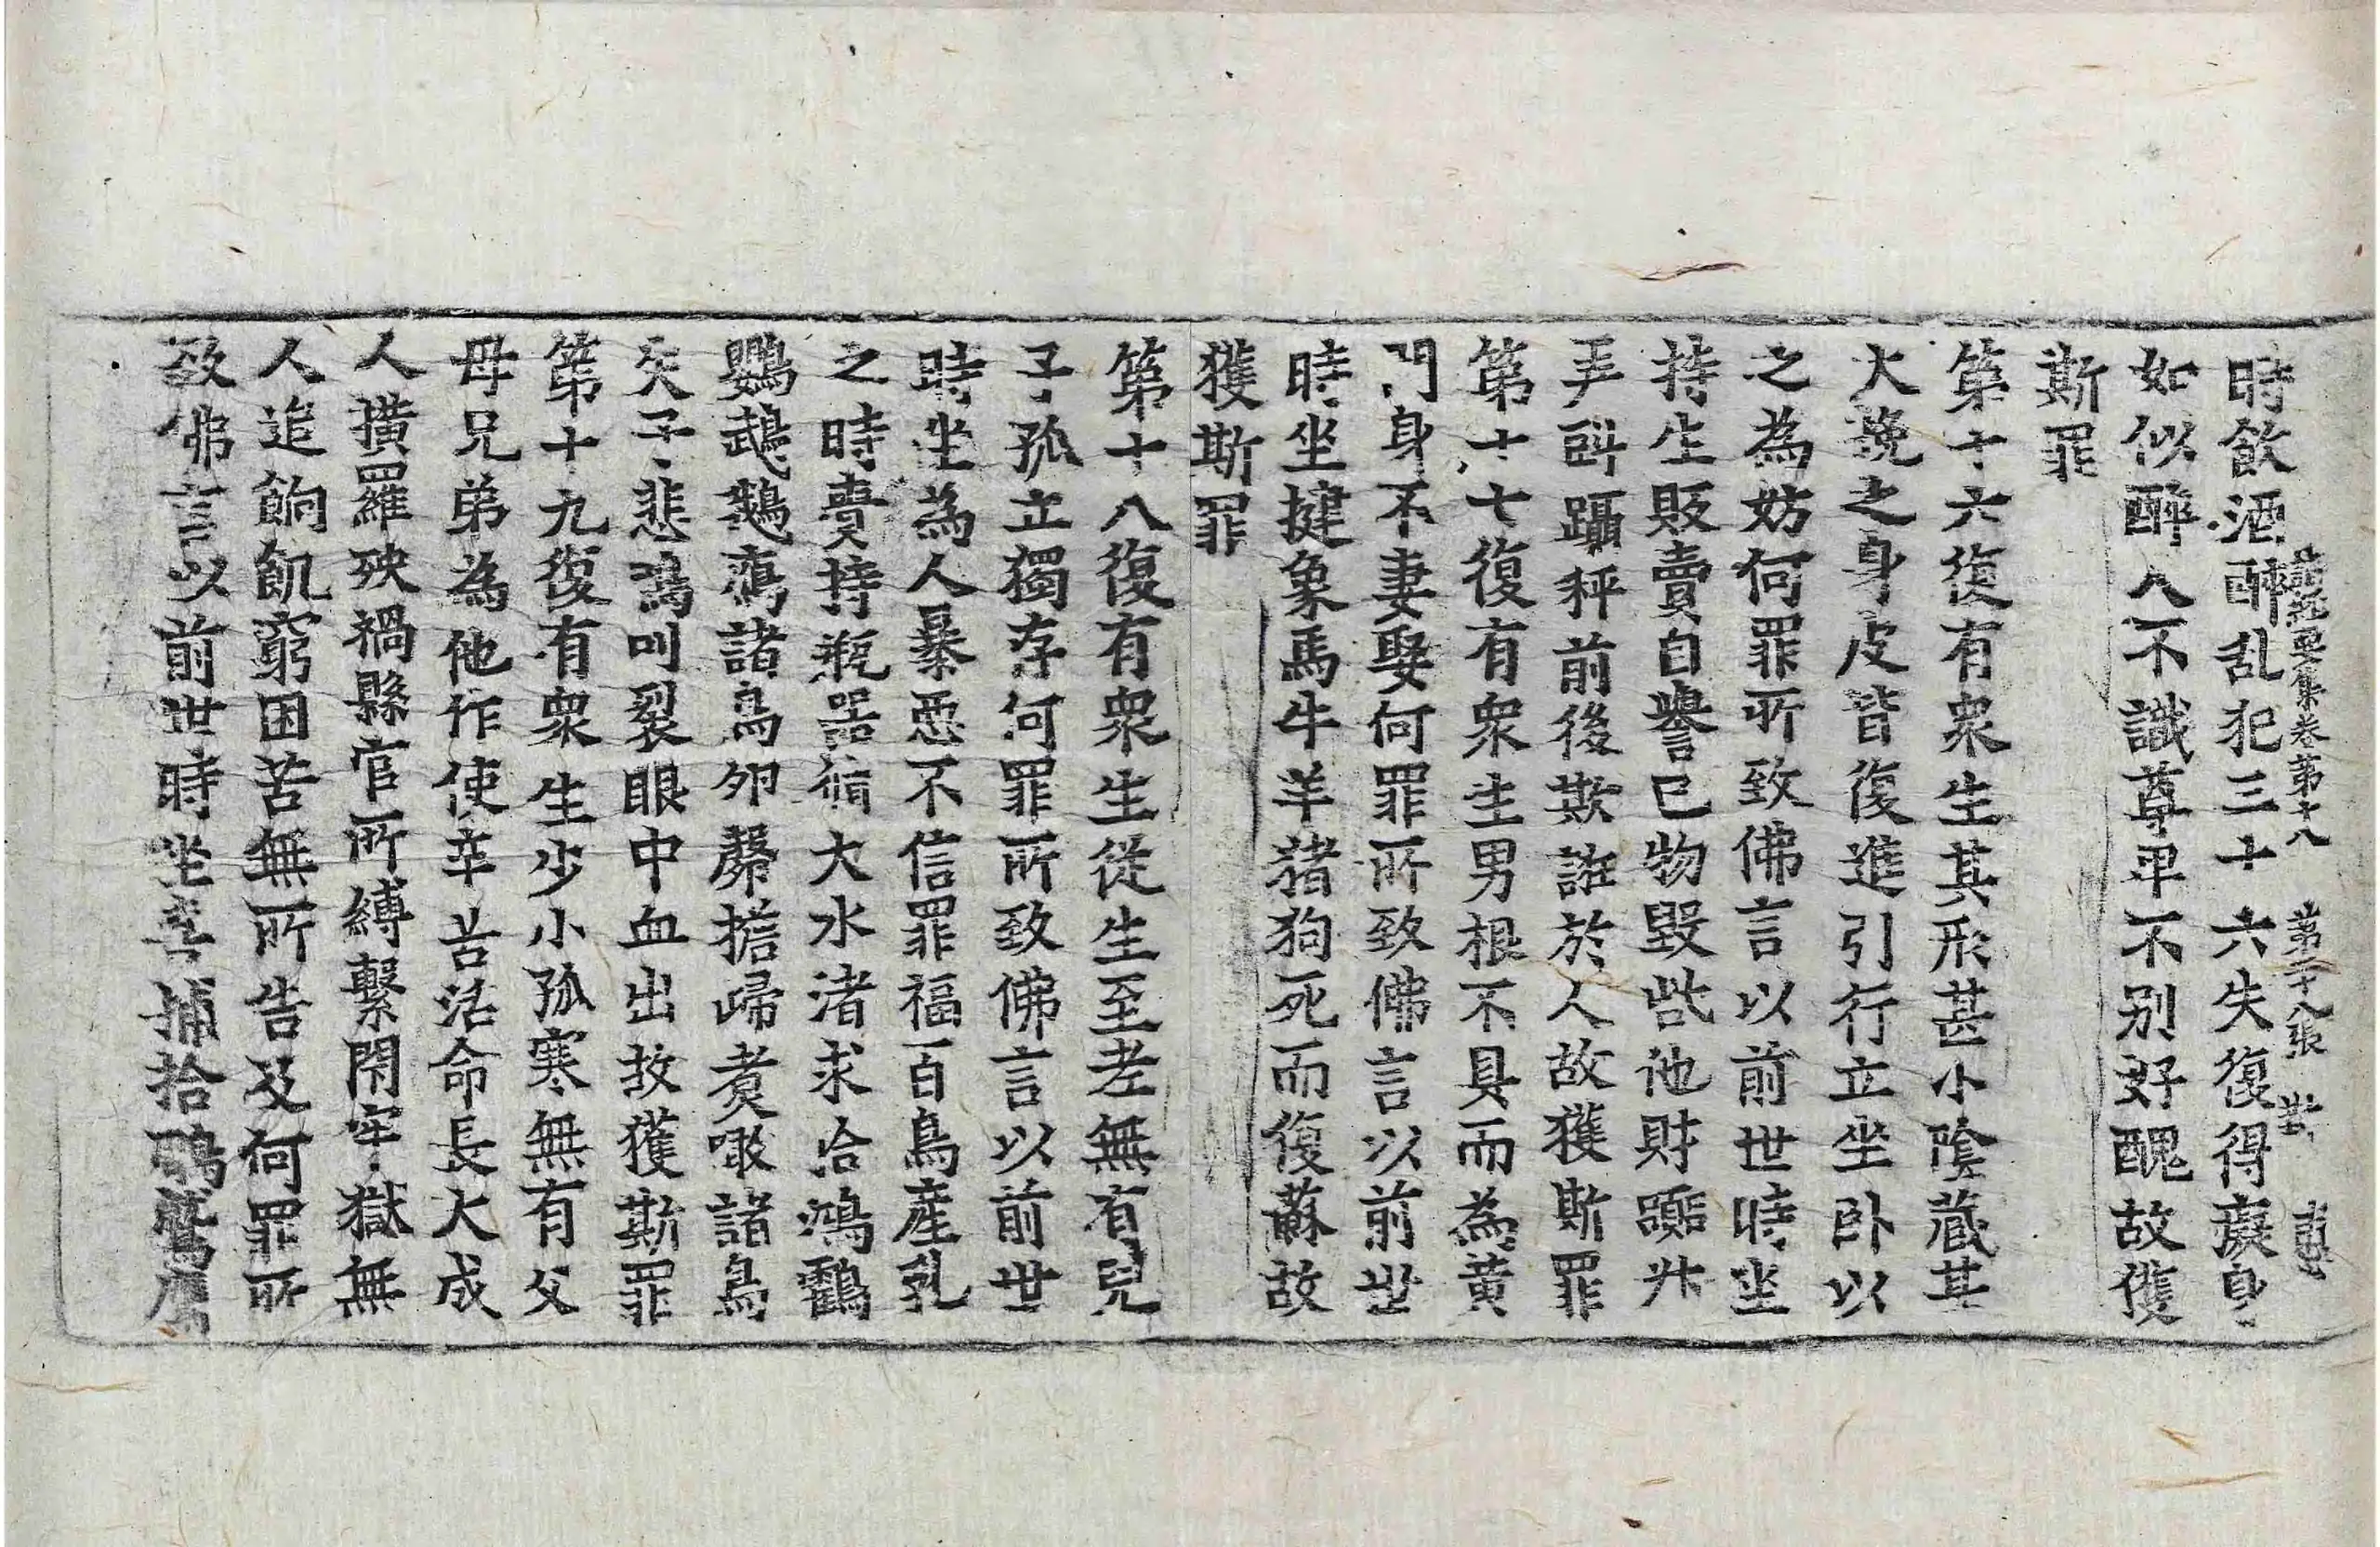 諸經要集卷第十八 第二十八張
時飲酒醉乱犯三十六失復得癡身
如似醉人不識尊卑不別好醜故獲
斯罪
第十六復有衆生其形甚小陰藏甚
大挽之身皮皆復進引行立坐卧以
之為妨何罪所致佛言以前世時坐
持生販賣自譽己物毀呰他財蹻升
弄㪷躡秤前後欺誑於人故獲斯罪
第十七復有衆生男根不具而為黄
門身不妻娶何罪所致佛言以前世
時坐揵象馬牛羊猪狗死而復蘇故
獲斯罪
第十八復有衆生從生至老無有兒
子孤立獨存何罪所致佛言以前世
時坐為人暴惡不信罪福百鳥産乳
之時賷持瓶器循大水渚求拾鴻鸖
鸚鵡鵝鴈諸鳥卵𪃿擔歸煑噉諸鳥
失子悲鳴叫裂眼中血出故獲斯罪
第十九復有衆生少小孤寒無有父
母兄弟為他作使辛苦活命長大成
人橫羅殃禍縣官所縛繫閇牢獄無
人追餉飢窮困苦無所告及何罪所
致佛言以前世時坐喜捕拾鵰鷲鷹